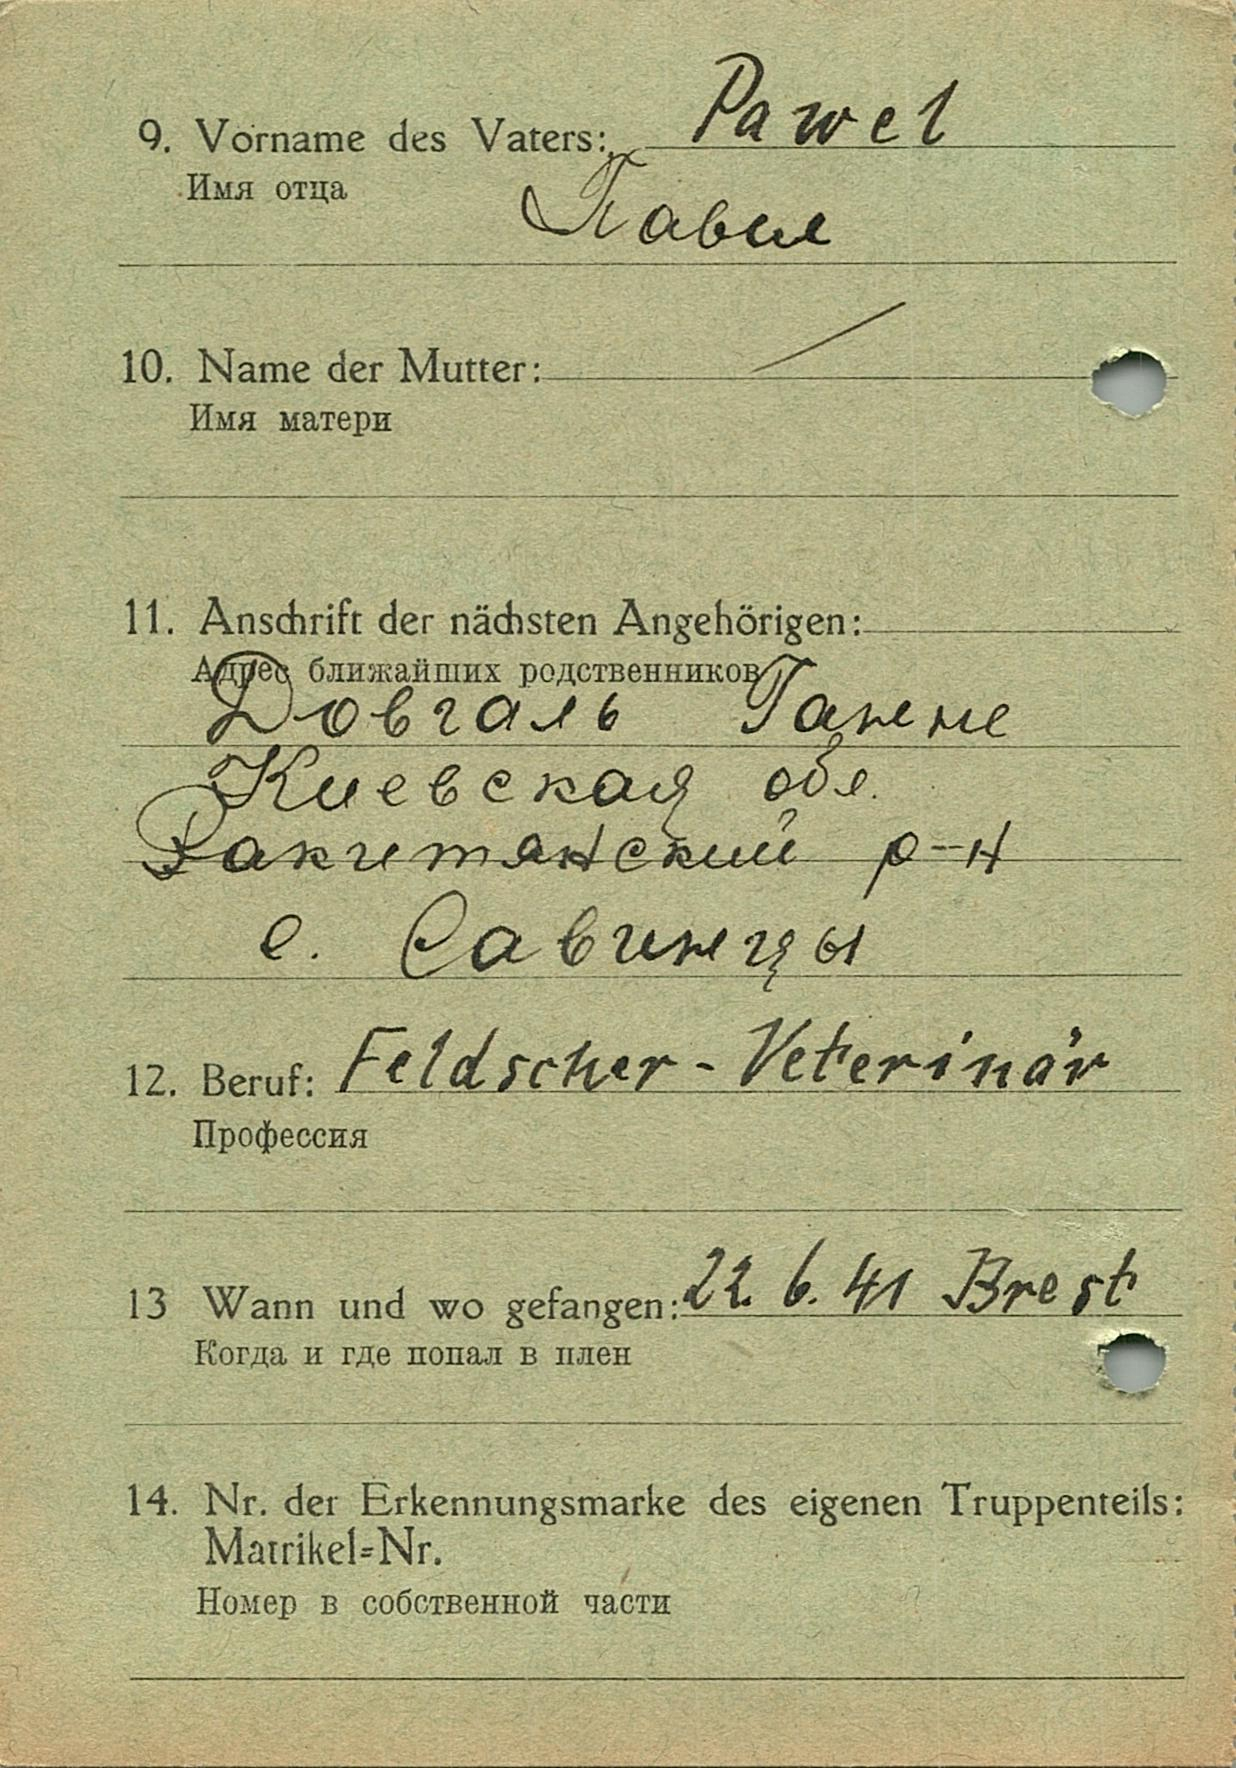 9. Vorname des Vaters: Pawel
Имя отца
Павел
10. Name der Mutter:
Имя матери
11. Anschrift der nächsten Angehörigen:
Адрес ближайших родственников
Довгаль Ганне
Киевская обл.
Ракитянский р-н
с. Савинцы
12. Beruf: Feldscher-Veterinär
Профессия
13 Wann und wo gefangen: 22. 6. 41 Brest
Когда и где попал в плен
14. Nr. der Erkennungsmarke des eigenen Truppenteils:
Matrikel=Nr.
Номер в собственной части